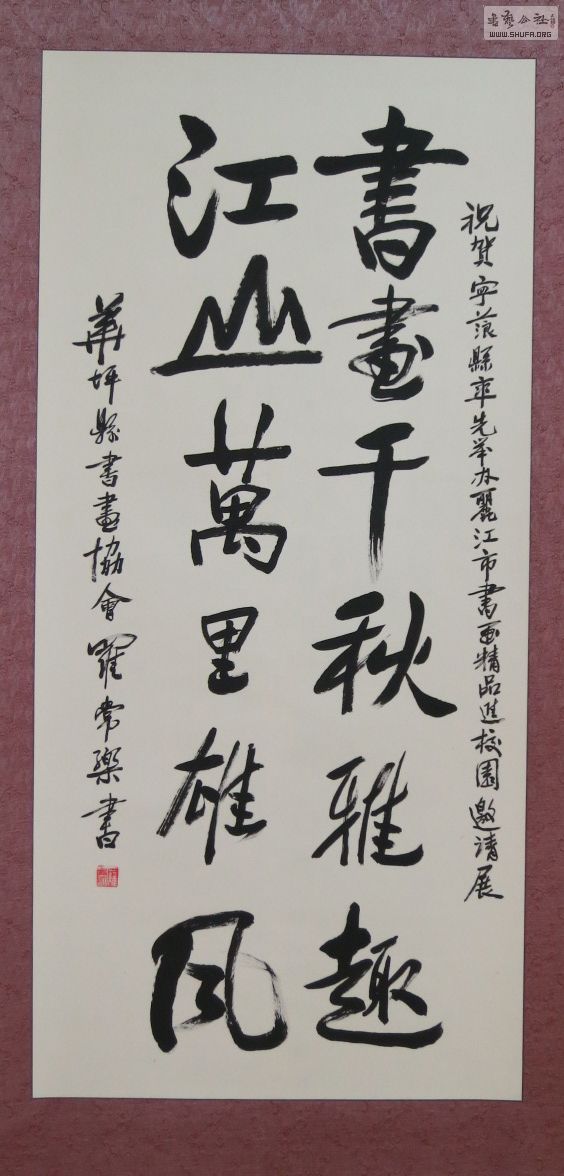 祝贺宁蒗縣率先举办麗江市書画精品進校園邀请展
書畫千秋雅趣
江山萬里雄风
華坪縣書畫協會羅常樂書
書藝公社
WWW.SHUFA.ORG